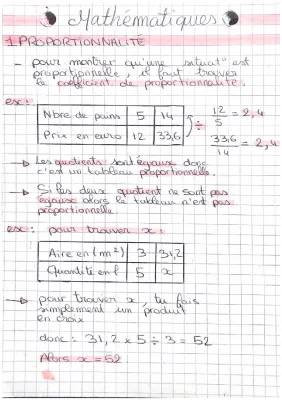 Mathématiques
1 PROPORTIONNALITÉ
- pour montrer qu'une situat° est
proportionnelle, il faut trouver
le coefficient de proportionnalité.
ex:
Nbre de pains 5 14
Prix en euro 12 33,6
÷
12/5 = 2,4
33,6/14 = 2,4
→ Les quotients sont égaux donc
c'est un tableau proportionnelle.
→ Si les deux quotient ne sont pas
égaux alors le tableau n'est pas
proportionnelle.
ex: pour trouver x:
Aire en (m²) 3 31,2
Quantité en l 5 x
→ pour trouver x, tu fais
simplement un produit
en croix
donc: 31,2 x 5 ÷ 3 = 52
Alors x = 52